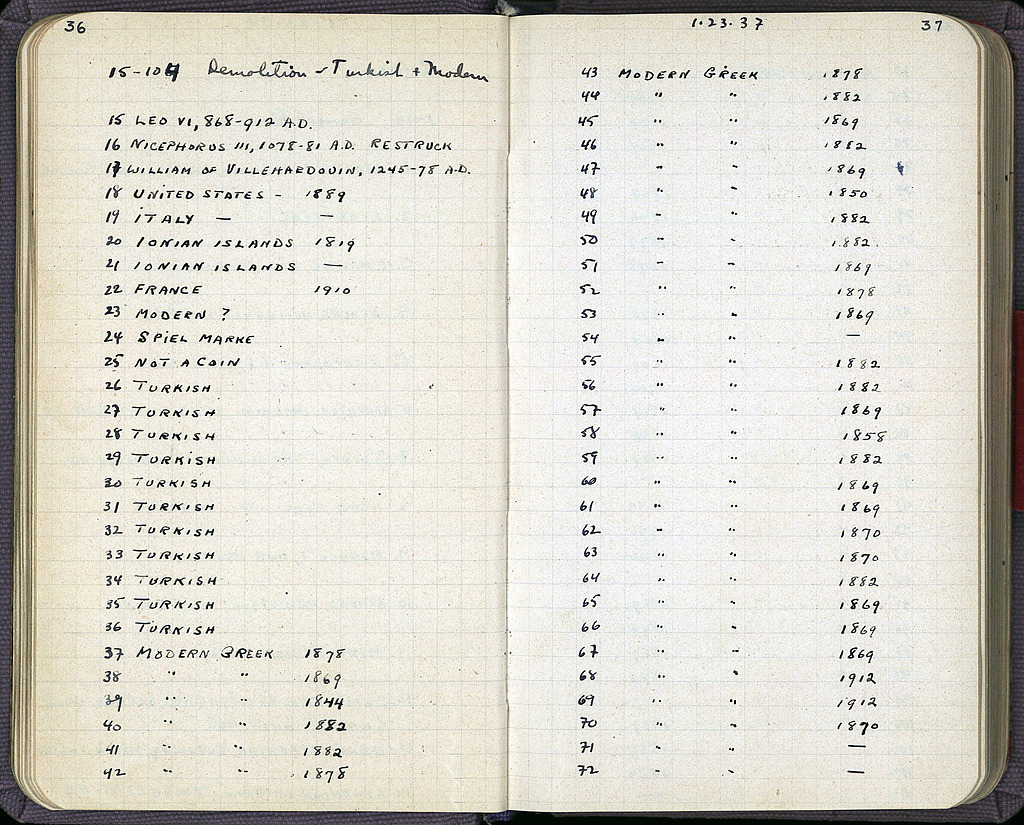 36
15-104 Demolition - Turkish + Modern
15 LEO VI, 868-912 A.D.
16 NICEPHORUS III, 1078-81 A.D. RESTRUCK
17 WILLIAM OF VILLEHARDOUIN, 1245-78 A.D.
18 UNITED STATES - 1889
19 ITALY — —
20 IONIAN ISLANDS 1819
21 IONIAN ISLANDS —
22 FRANCE 1910
23 MODERN ?
24 SPIEL MARKE
25 NOT A COIN
26 TURKISH
27 TURKISH
28 TURKISH
29 TURKISH
30 TURKISH
31 TURKISH
32 TURKISH
33 TURKISH
34 TURKISH
35 TURKISH
36 TURKISH
37 MODERN GREEK 1878
38 " " 1869
39 " " 1844
40 " " 1882
41 " " 1882
42 " " 1878
1.23.37 37
43 MODERN GREEK 1878
44 " " 1882
45 " " 1869
46 " " 1882
47 " " 1869
48 " " 1850
49 " " 1882
50 " " 1882
51 " " 1869
52 " " 1878
53 " " 1869
54 " " —
55 " " 1882
56 " " 1882
57 " " 1869
58 " " 1858
59 " " 1882
60 " " 1869
61 " " 1869
62 " " 1870
63 " " 1870
64 " " 1882
65 " " 1869
66 " " 1869
67 " " 1869
68 " " 1912
69 " " 1912
70 " " 1870
71 " " —
72 " " —